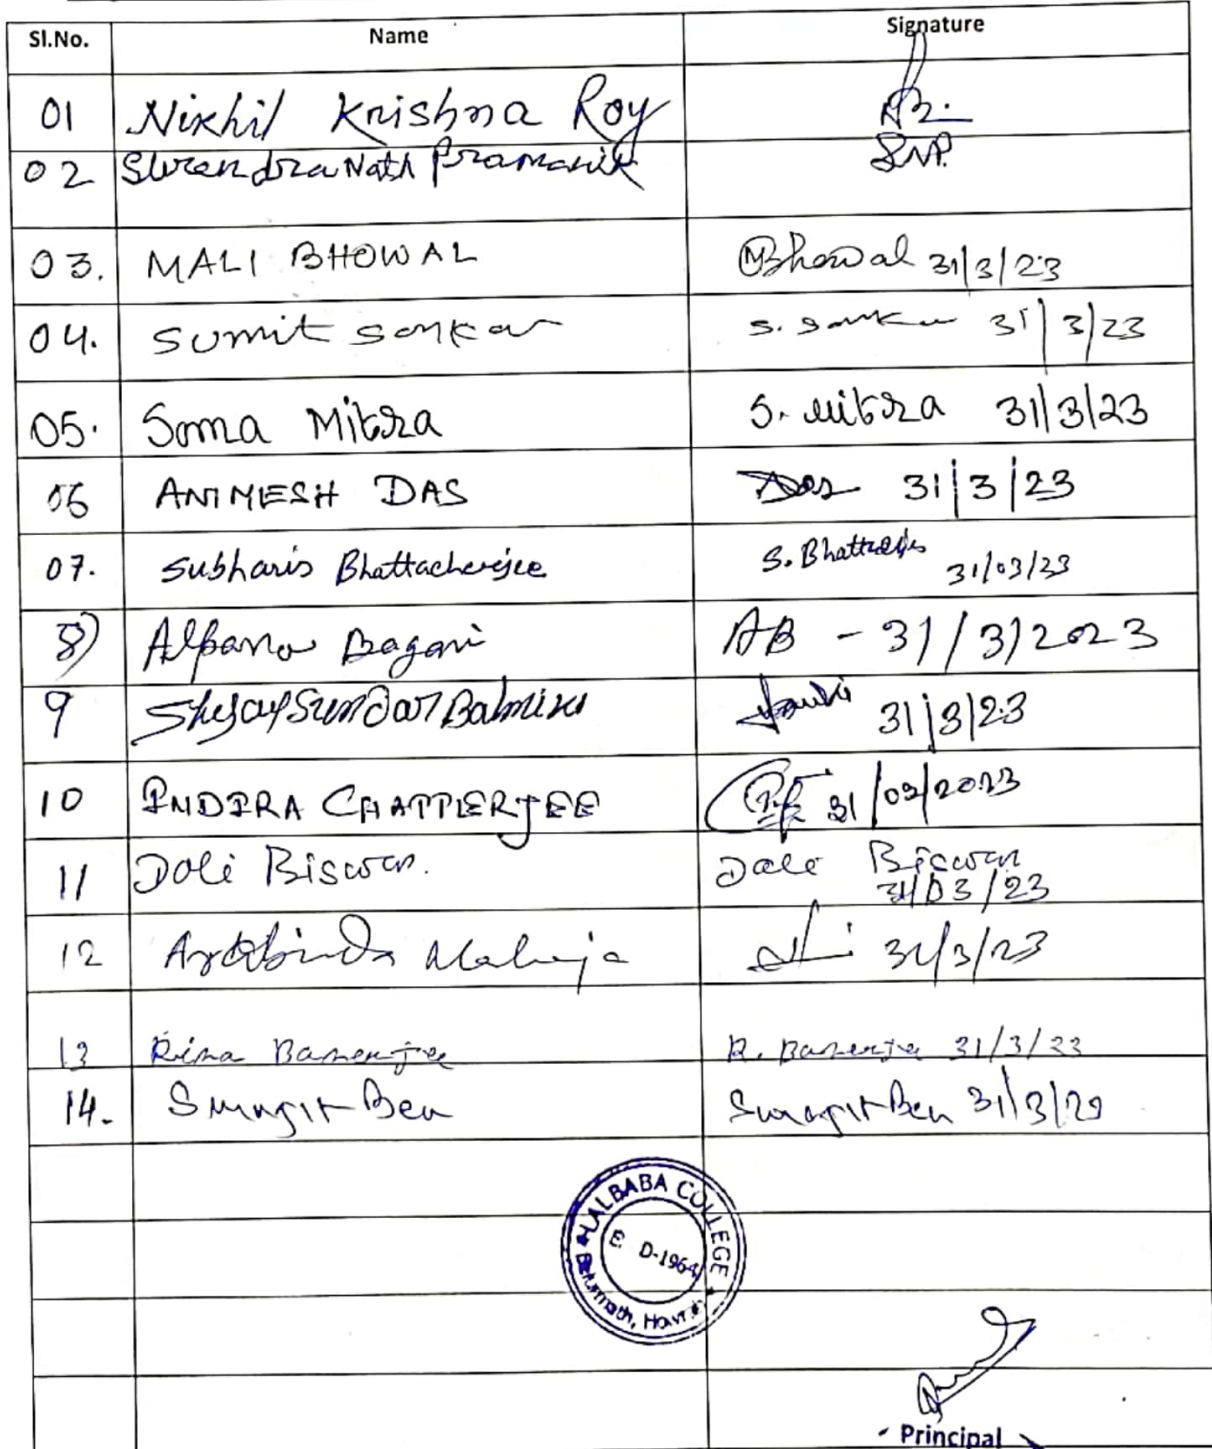 Sl.No. Name Signature
01 Nikhil Krishna Roy
02 Surendra Nath Pramanik SNP.
03. MALI BHOWAL MBhowal 31/3/23
04. Sumit Sonkar S. Sonkar 31/3/23
05. Soma Mitra S. Mitra 31/3/23
06 ANIMESH DAS Das 31/3/23
07. Subharis Bhattacherjee S. Bhattacherjee 31/03/23
8) Alpana Bagani AB - 31/3/2023
9 Shyam Sundar Balmiki 31/3/23
10 INDIRA CHATTERJEE 31/03/2023
11 Doli Biswas. Doli Biswas
31/03/23
12 31/3/23
13 Rina Banerjee R. Banerjee 31/3/23
14. 31/3/23
LALBABA COLLEGE
D-1964
Belurmath, Howrah
Principal